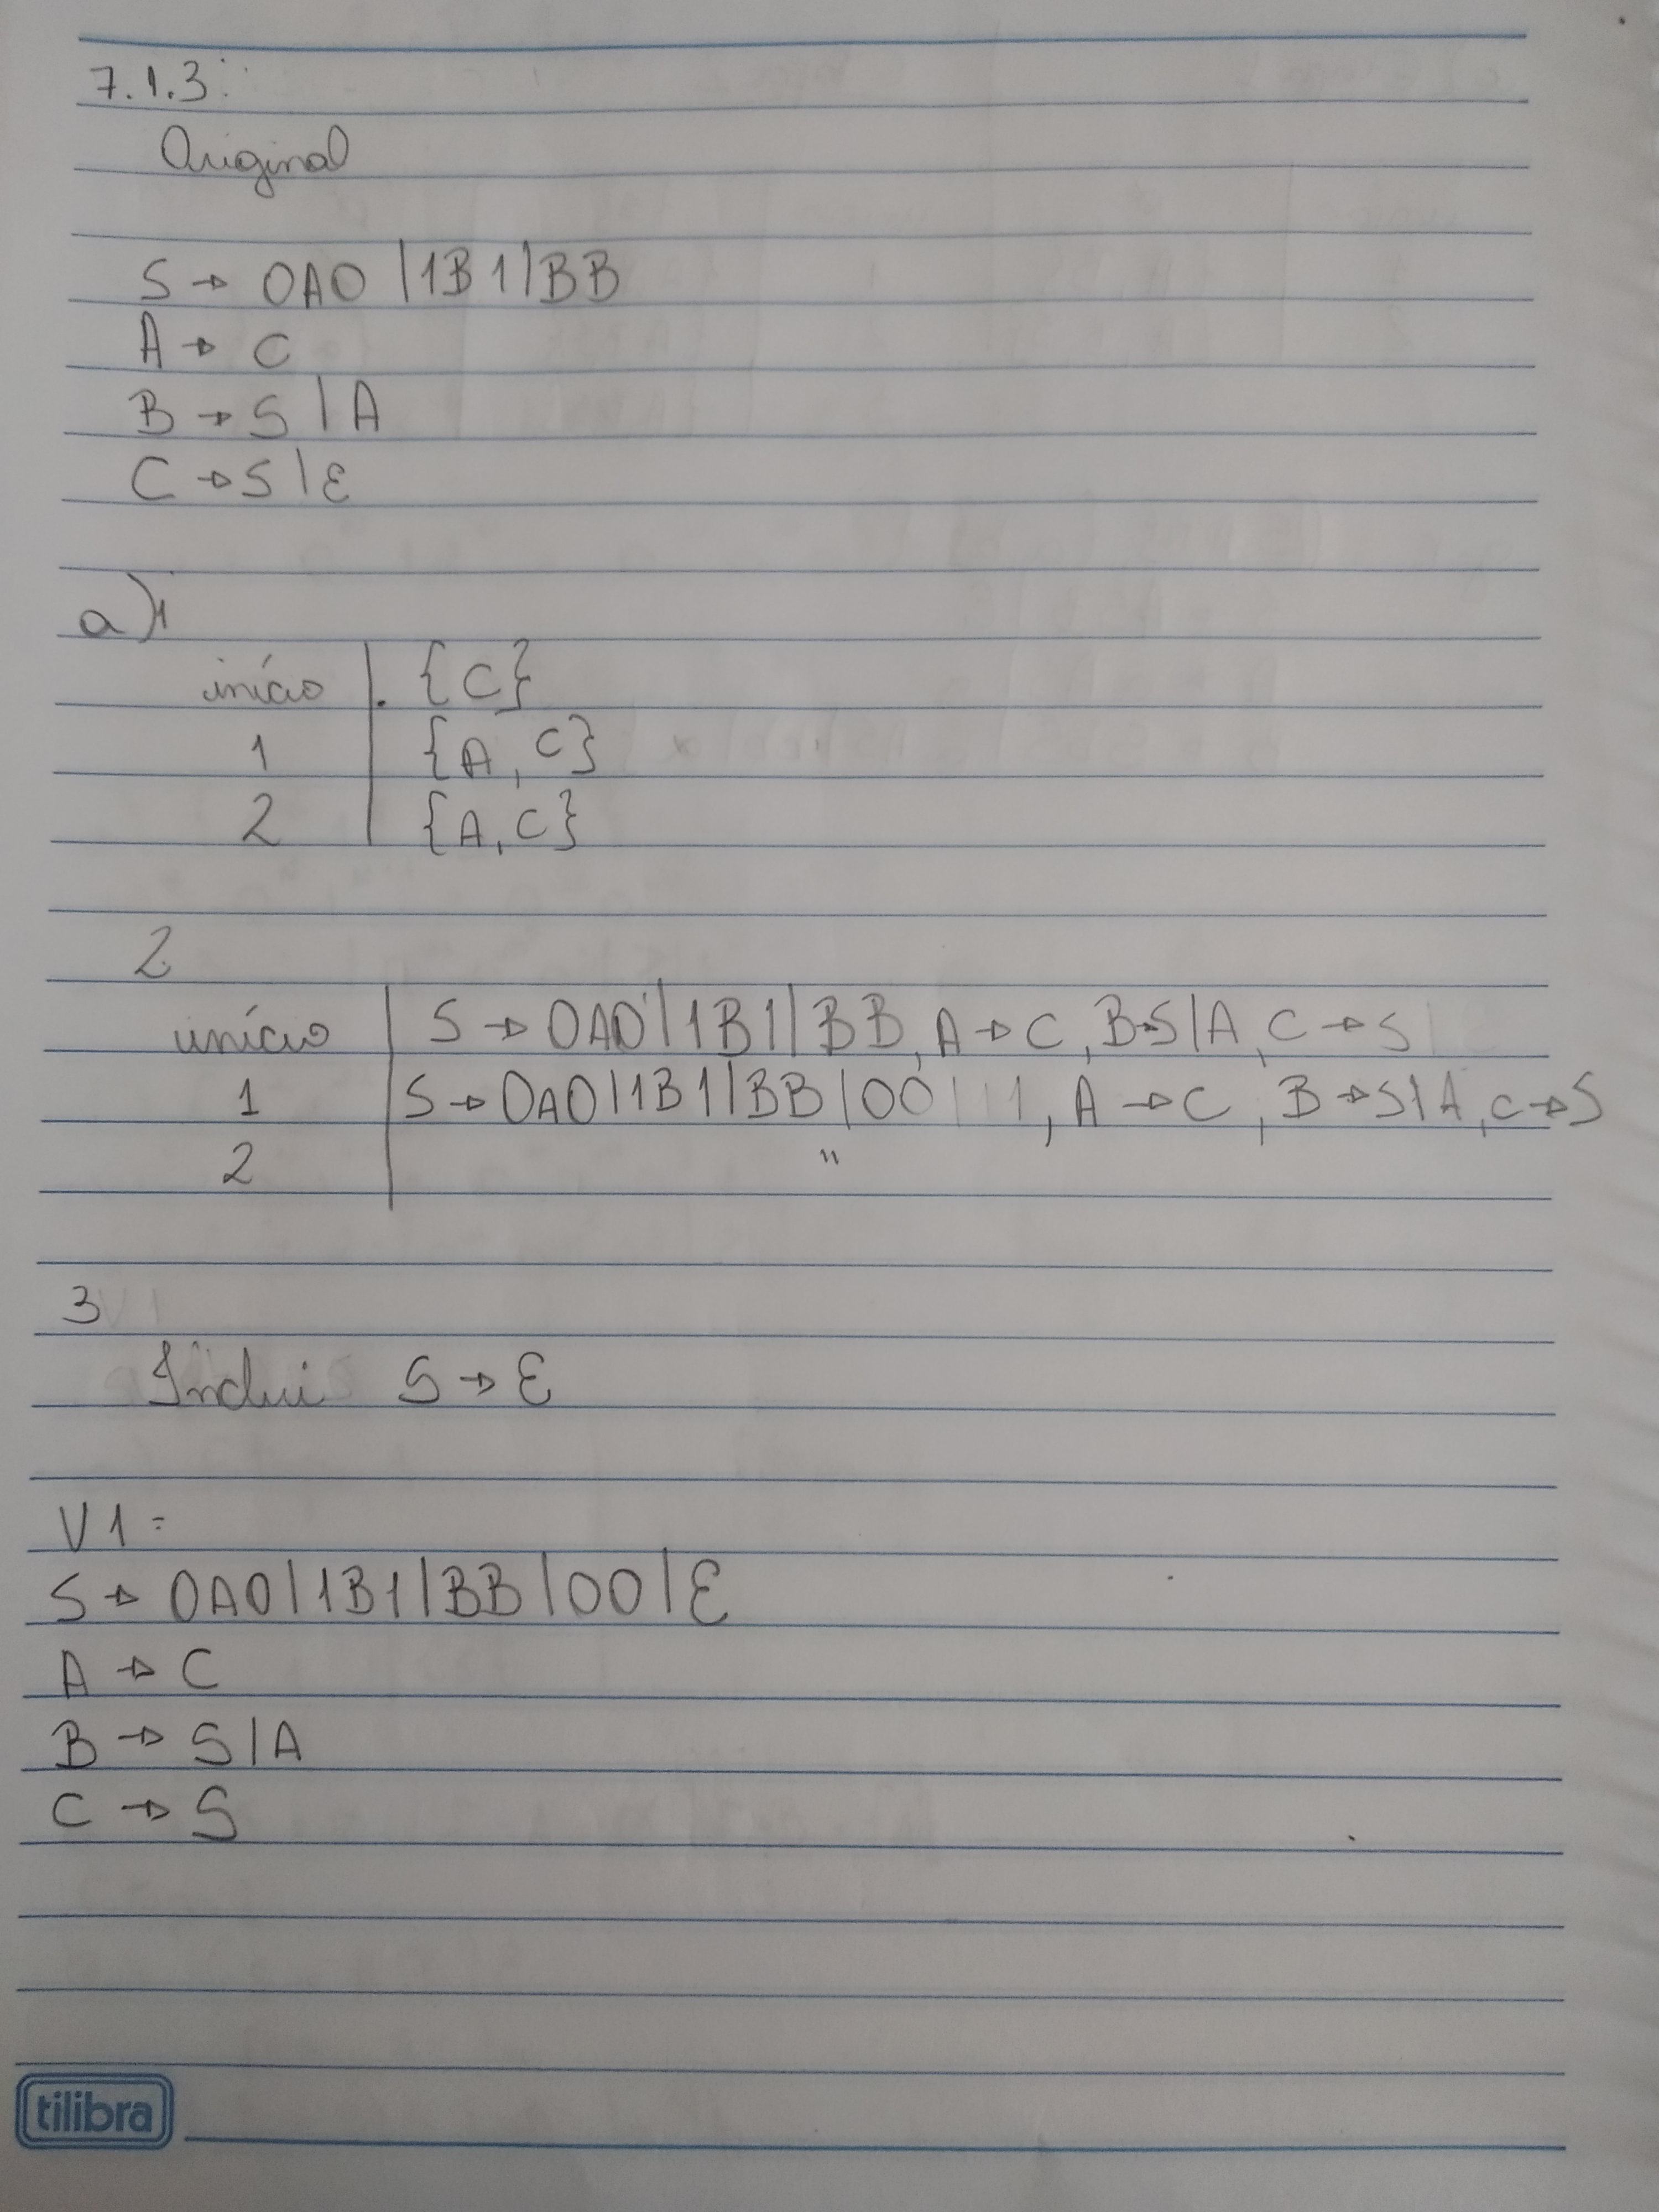 7.1.3:
Original
S → 0A0 | 1B1 | BB
A → C
B → S | A
C → S | ε
a) 1
início {C}
1 {A, C}
2 {A, C}
2
início S → 0A0 | 1B1 | BB, A → C, B→S | A, C → S
1 S → 0A0 | 1B1 | BB | 00, A → C, B → S | A, C → S
2 "
3
Inclui S → ε
V1 =
S → 0A0 | 1B1 | BB | 00 | ε
A → C
B → S | A
C → S
tilibra